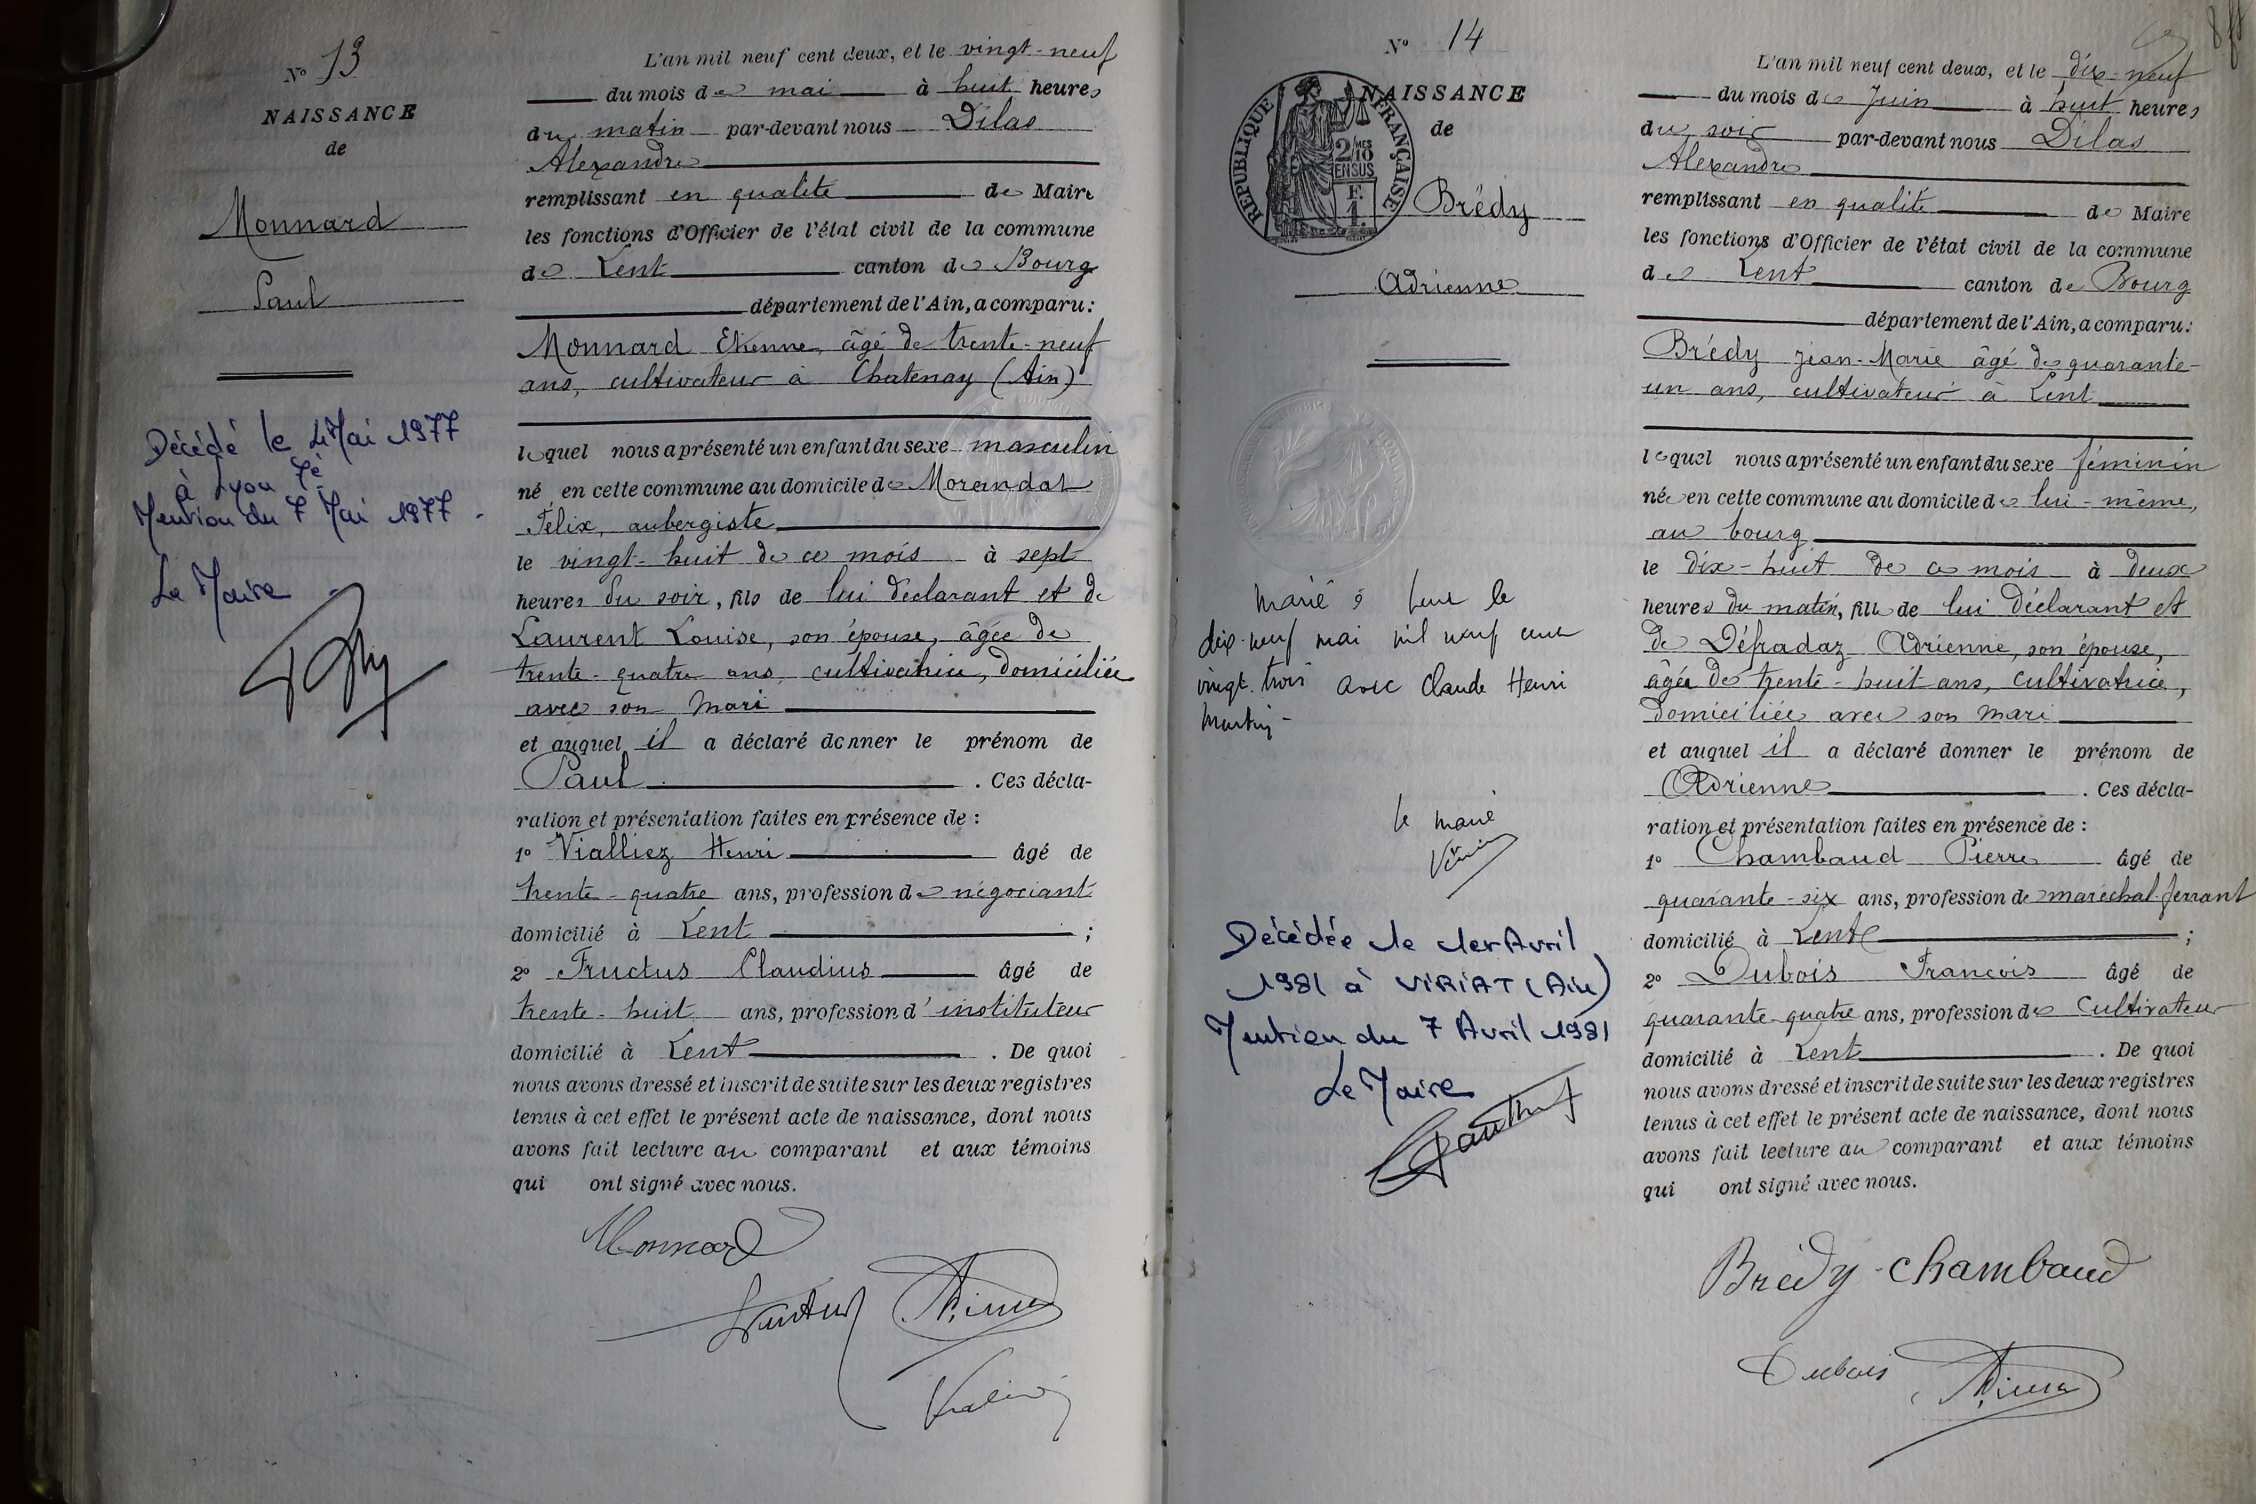 N° 13
NAISSANCE
de
Monnard
Paul
Décédé le 4 Mai 1977
à Lyon 7è
Mention du 7 Mai 1977 -
Le Maire
L'an mil neuf cent deux, et le vingt-neuf
du mois de mai à huit heures
du matin par-devant nous Dilas
Alexandre
remplissant en qualité de Maire
les fonctions d'Officier de l'état civil de la commune
de Lent canton de Bourg
département de l'Ain, a comparu :
Monnard Etienne, âgé de trente-neuf
ans, cultivateur à Chatenay (Ain)
lequel nous a présenté un enfant du sexe masculin
né en cette commune au domicile de Morandat
Félix, aubergiste
le vingt-huit de ce mois à sept
heures du soir, fils de lui déclarant et de
Laurent Louise, son épouse, âgée de
trente-quatre ans, cultivatrice, domiciliée
avec son mari
et auquel il a déclaré donner le prénom de
Paul . Ces décla-
ration et présentation faites en présence de :
1° Vialliez Henri âgé de
trente-quatre ans, profession de négociant
domicilié à Lent ;
2° Fructus Claudius âgé de
trente-huit ans, profession d'instituteur
domicilié à Lent . De quoi
nous avons dressé et inscrit de suite sur les deux registres
tenus à cet effet le présent acte de naissance, dont nous
avons fait lecture au comparant et aux témoins
qui ont signé avec nous.
Monnard
N° 14
NAISSANCE
de
REPUBLIQUE FRANÇAISE
2/10MES
EN SUS
F.
1
Brédy
Adrienne
Marié à le
dix-neuf mai mil neuf cent
vingt-trois avec Claude Henri
Martin -
le maire
Décédée le 1er Avril
1981 à VIRIAT (Ain)
Mention du 7 Avril 1981
Le Maire
L'an mil neuf cent deux, et le dix-neuf
du mois de Juin à huit heures
du soir par-devant nous Dilas
Alexandre
remplissant en qualité de Maire
les fonctions d'Officier de l'état civil de la commune
de Lent canton de Bourg
département de l'Ain, a comparu :
Brédy Jean-Marie âgé de quarante-
un ans, cultivateur à Lent
lequel nous a présenté un enfant du sexe féminin
née en cette commune au domicile de lui-même,
au bourg
le dix-huit de ce mois à deux
heures du matin, fille de lui déclarant et
de Défradaz Adrienne, son épouse,
âgée de trente-huit ans, cultivatrice,
domiciliée avec son mari
et auquel il a déclaré donner le prénom de
Adrienne . Ces décla-
ration et présentation faites en présence de :
1° Chambaud Pierre âgé de
quarante-six ans, profession de maréchal ferrant
domicilié à Lent ;
2° Dubois François âgé de
quarante-quatre ans, profession de cultivateur
domicilié à Lent . De quoi
nous avons dressé et inscrit de suite sur les deux registres
tenus à cet effet le présent acte de naissance, dont nous
avons fait lecture au comparant et aux témoins
qui ont signé avec nous.
Brédy - Chambaud
Dubois